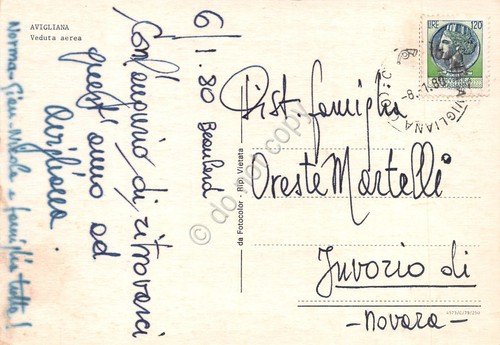 AVIGLIANA
Veduta aerea
6/1.80 Beaulard
Con augurio di ritrovarci
quest'anno ad
Avigliana.
Norma - Gian - Nicola e famiglia tutta!
LIRE 120
AVIGLIANA
-8.-1.80
Dist. famiglia
Oreste Martelli
Invorio di
- Novara -
da Fotocolor - Rip. Vietata
© do not copy